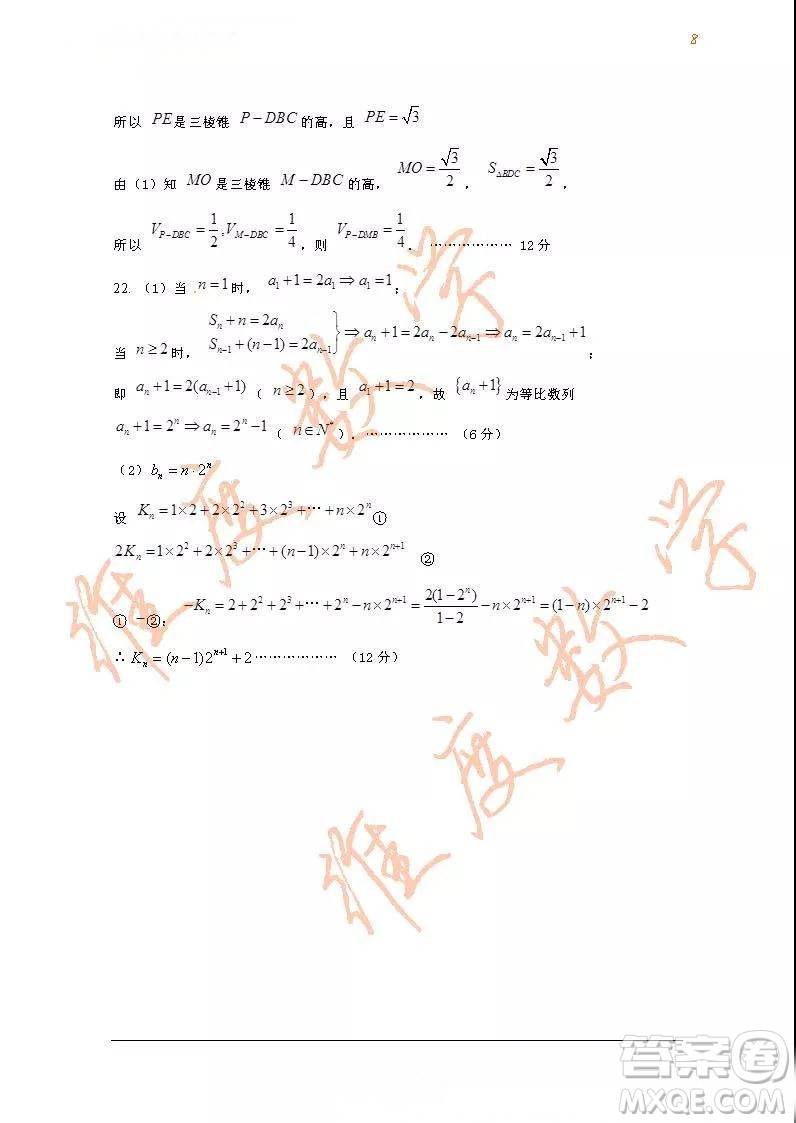 8
所以 PE是三棱锥 P－DBC 的高，且 PE=√3
由（1）知 MO 是三棱锥 M－DBC 的高， MO=√3/2 ， S△BDC=√3/2 ，
所以 V_{P-DBC}=1/2;V_{M-DBC}=1/4，则 V_{P-DMB}=1/4． ……………… 12分
22. （1）当 n=1时， a₁+1=2a₁⇒a₁=1;
当 n≥2 时， S_n+n=2a_n
S_{n-1}+(n-1)=2a_{n-1} } ⇒a_n+1=2a_n-2a_{n-1}⇒a_n=2a_{n-1}+1 ；
即 a_n+1=2(a_{n-1}+1) （ n≥2 ），且 a₁+1=2 ，故 {a_n+1} 为等比数列
a_n+1=2^n⇒a_n=2^n-1（ n∈N^*）． ……………… （6分）
（2）b_n=n·2^n
设 K_n=1×2+2×2²+3×2³+…+n×2^n①
2K_n=1×2²+2×2³+…+(n-1)×2^n+n×2^{n+1} ②
①－②： -K_n=2+2²+2³+…+2^n-n×2^{n+1}=2(1-2^n)/(1-2)-n×2^{n+1}=(1-n)×2^{n+1}-2
∴ K_n=(n-1)2^{n+1}+2……………… （12分）
维度数学
维度数学
答案卷
MXQE.COM